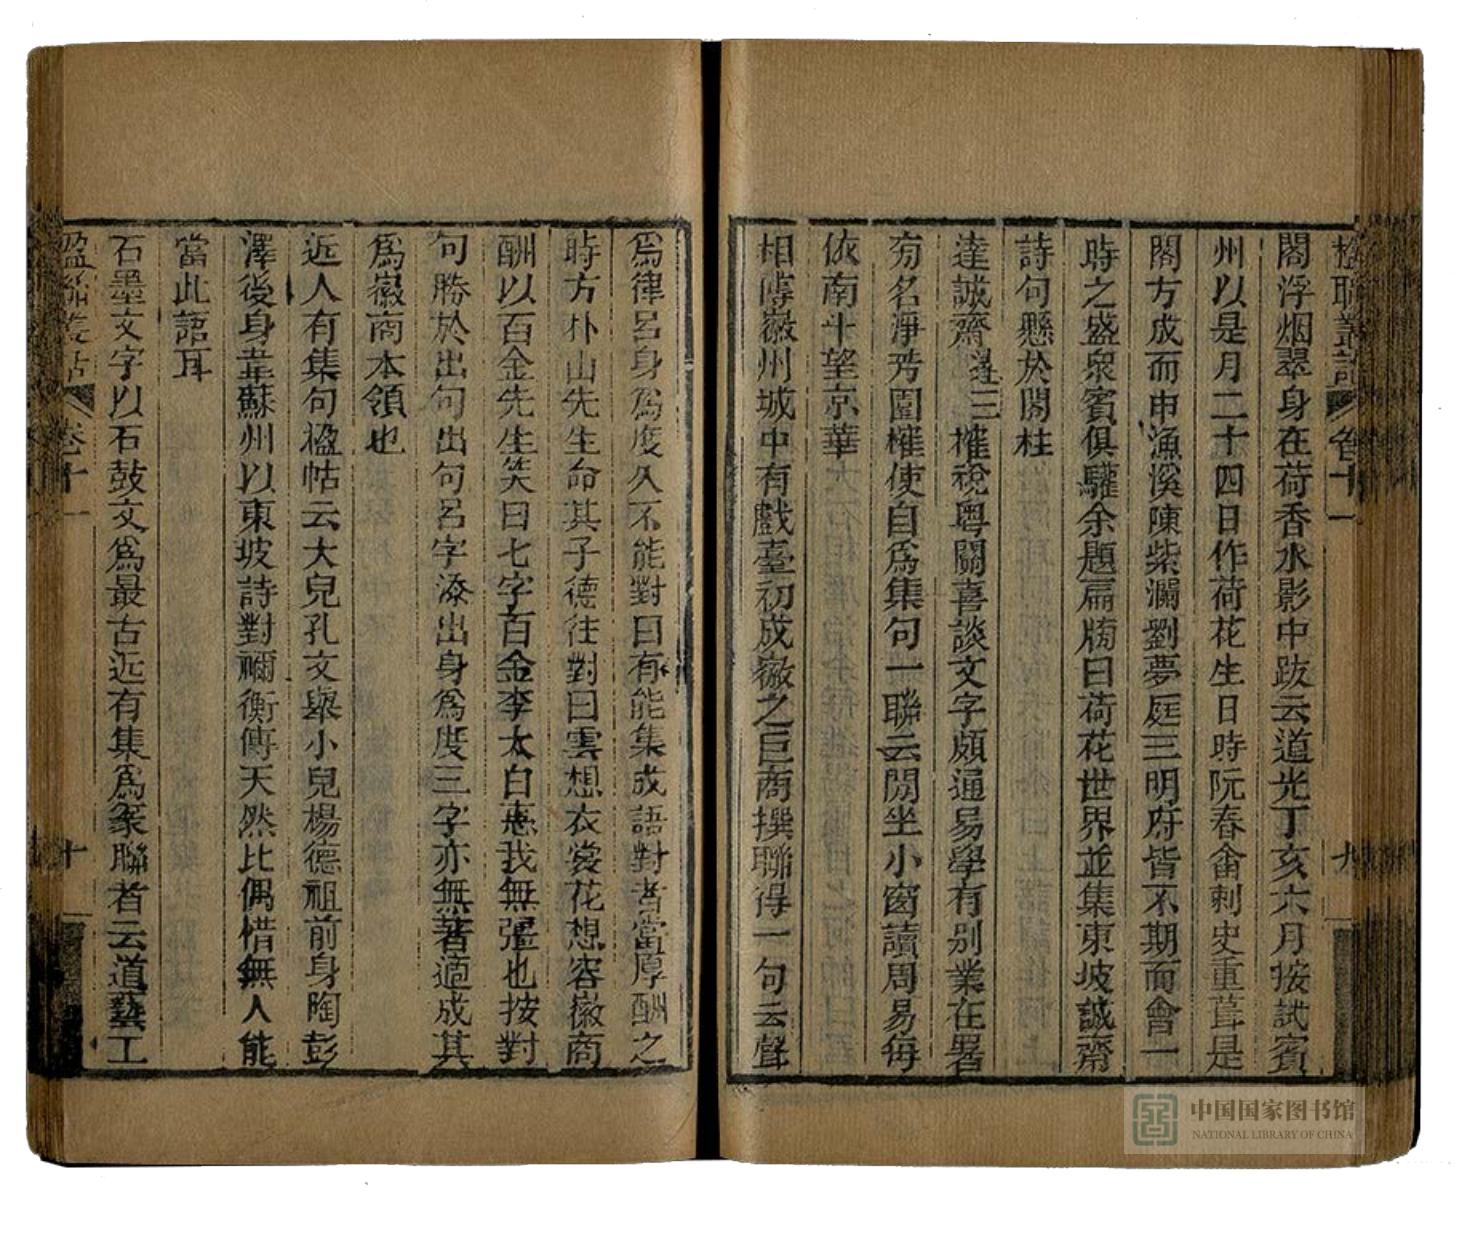 楹聯叢話 卷十一 九
閣浮烟翠身在荷香水影中跋云道光丁亥六月按試賓
州以是月二十四日作荷花生日時阮春畬刺史重葺是
閣方成而申漁溪陳紫瀾劉夢庭三明府皆不期而會一
時之盛衆賓俱驩余題扁牓曰荷花世界並集東坡誠齋
詩句懸於閣柱
達誠齋達三榷稅粵關喜談文字頗通易學有别業在署
旁名淨芳園榷使自爲集句一聯云閒坐小窗讀周易每
依南斗望京華
相傳徽州城中有戲臺初成徽之巨商撰聯得一句云聲
爲律呂身爲度久不能對曰有能集成語對者當厚酬之
時方朴山先生命其子德往對曰雲想衣裳花想容徽商
酬以百金先生笑曰七字百金李太白惠我無彊也按對
句勝於出句出句呂字添出身爲度三字亦無著適成其
爲徽商本領也
近人有集句楹帖云大兒孔文舉小兒楊德祖前身陶彭
澤後身韋蘇州以東坡詩對禰衡傳天然比偶惜無人能
當此語耳
石墨文字以石鼓文爲最古近有集爲篆聯者云道藝工
楹聯叢話 卷十一 十
中国国家图书馆
NATIONAL LIBRARY OF CHINA